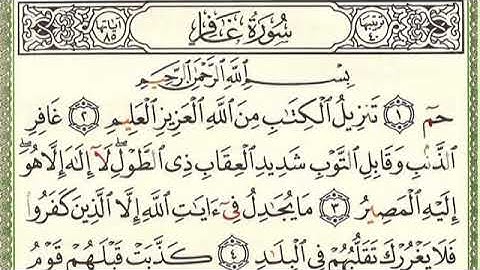 ترتيبها ٤٠ سُورَةُ غَافِرٍ آياتها ٨٥
بِسْمِ ٱللَّهِ ٱلرَّحْمَٰنِ ٱلرَّحِيمِ
حمٓ ١ تَنزِيلُ ٱلْكِتَٰبِ مِنَ ٱللَّهِ ٱلْعَزِيزِ ٱلْعَلِيمِ ٢ غَافِرِ
ٱلذَّنۢبِ وَقَابِلِ ٱلتَّوْبِ شَدِيدِ ٱلْعِقَابِ ذِى ٱلطَّوْلِ ۖ لَآ إِلَٰهَ إِلَّا هُوَ ۖ
إِلَيْهِ ٱلْمَصِيرُ ٣ مَا يُجَٰدِلُ فِىٓ ءَايَٰتِ ٱللَّهِ إِلَّا ٱلَّذِينَ كَفَرُوا۟
فَلَا يَغْرُرْكَ تَقَلُّبُهُمْ فِى ٱلْبِلَٰدِ ٤ كَذَّبَتْ قَبْلَهُمْ قَوْمُ